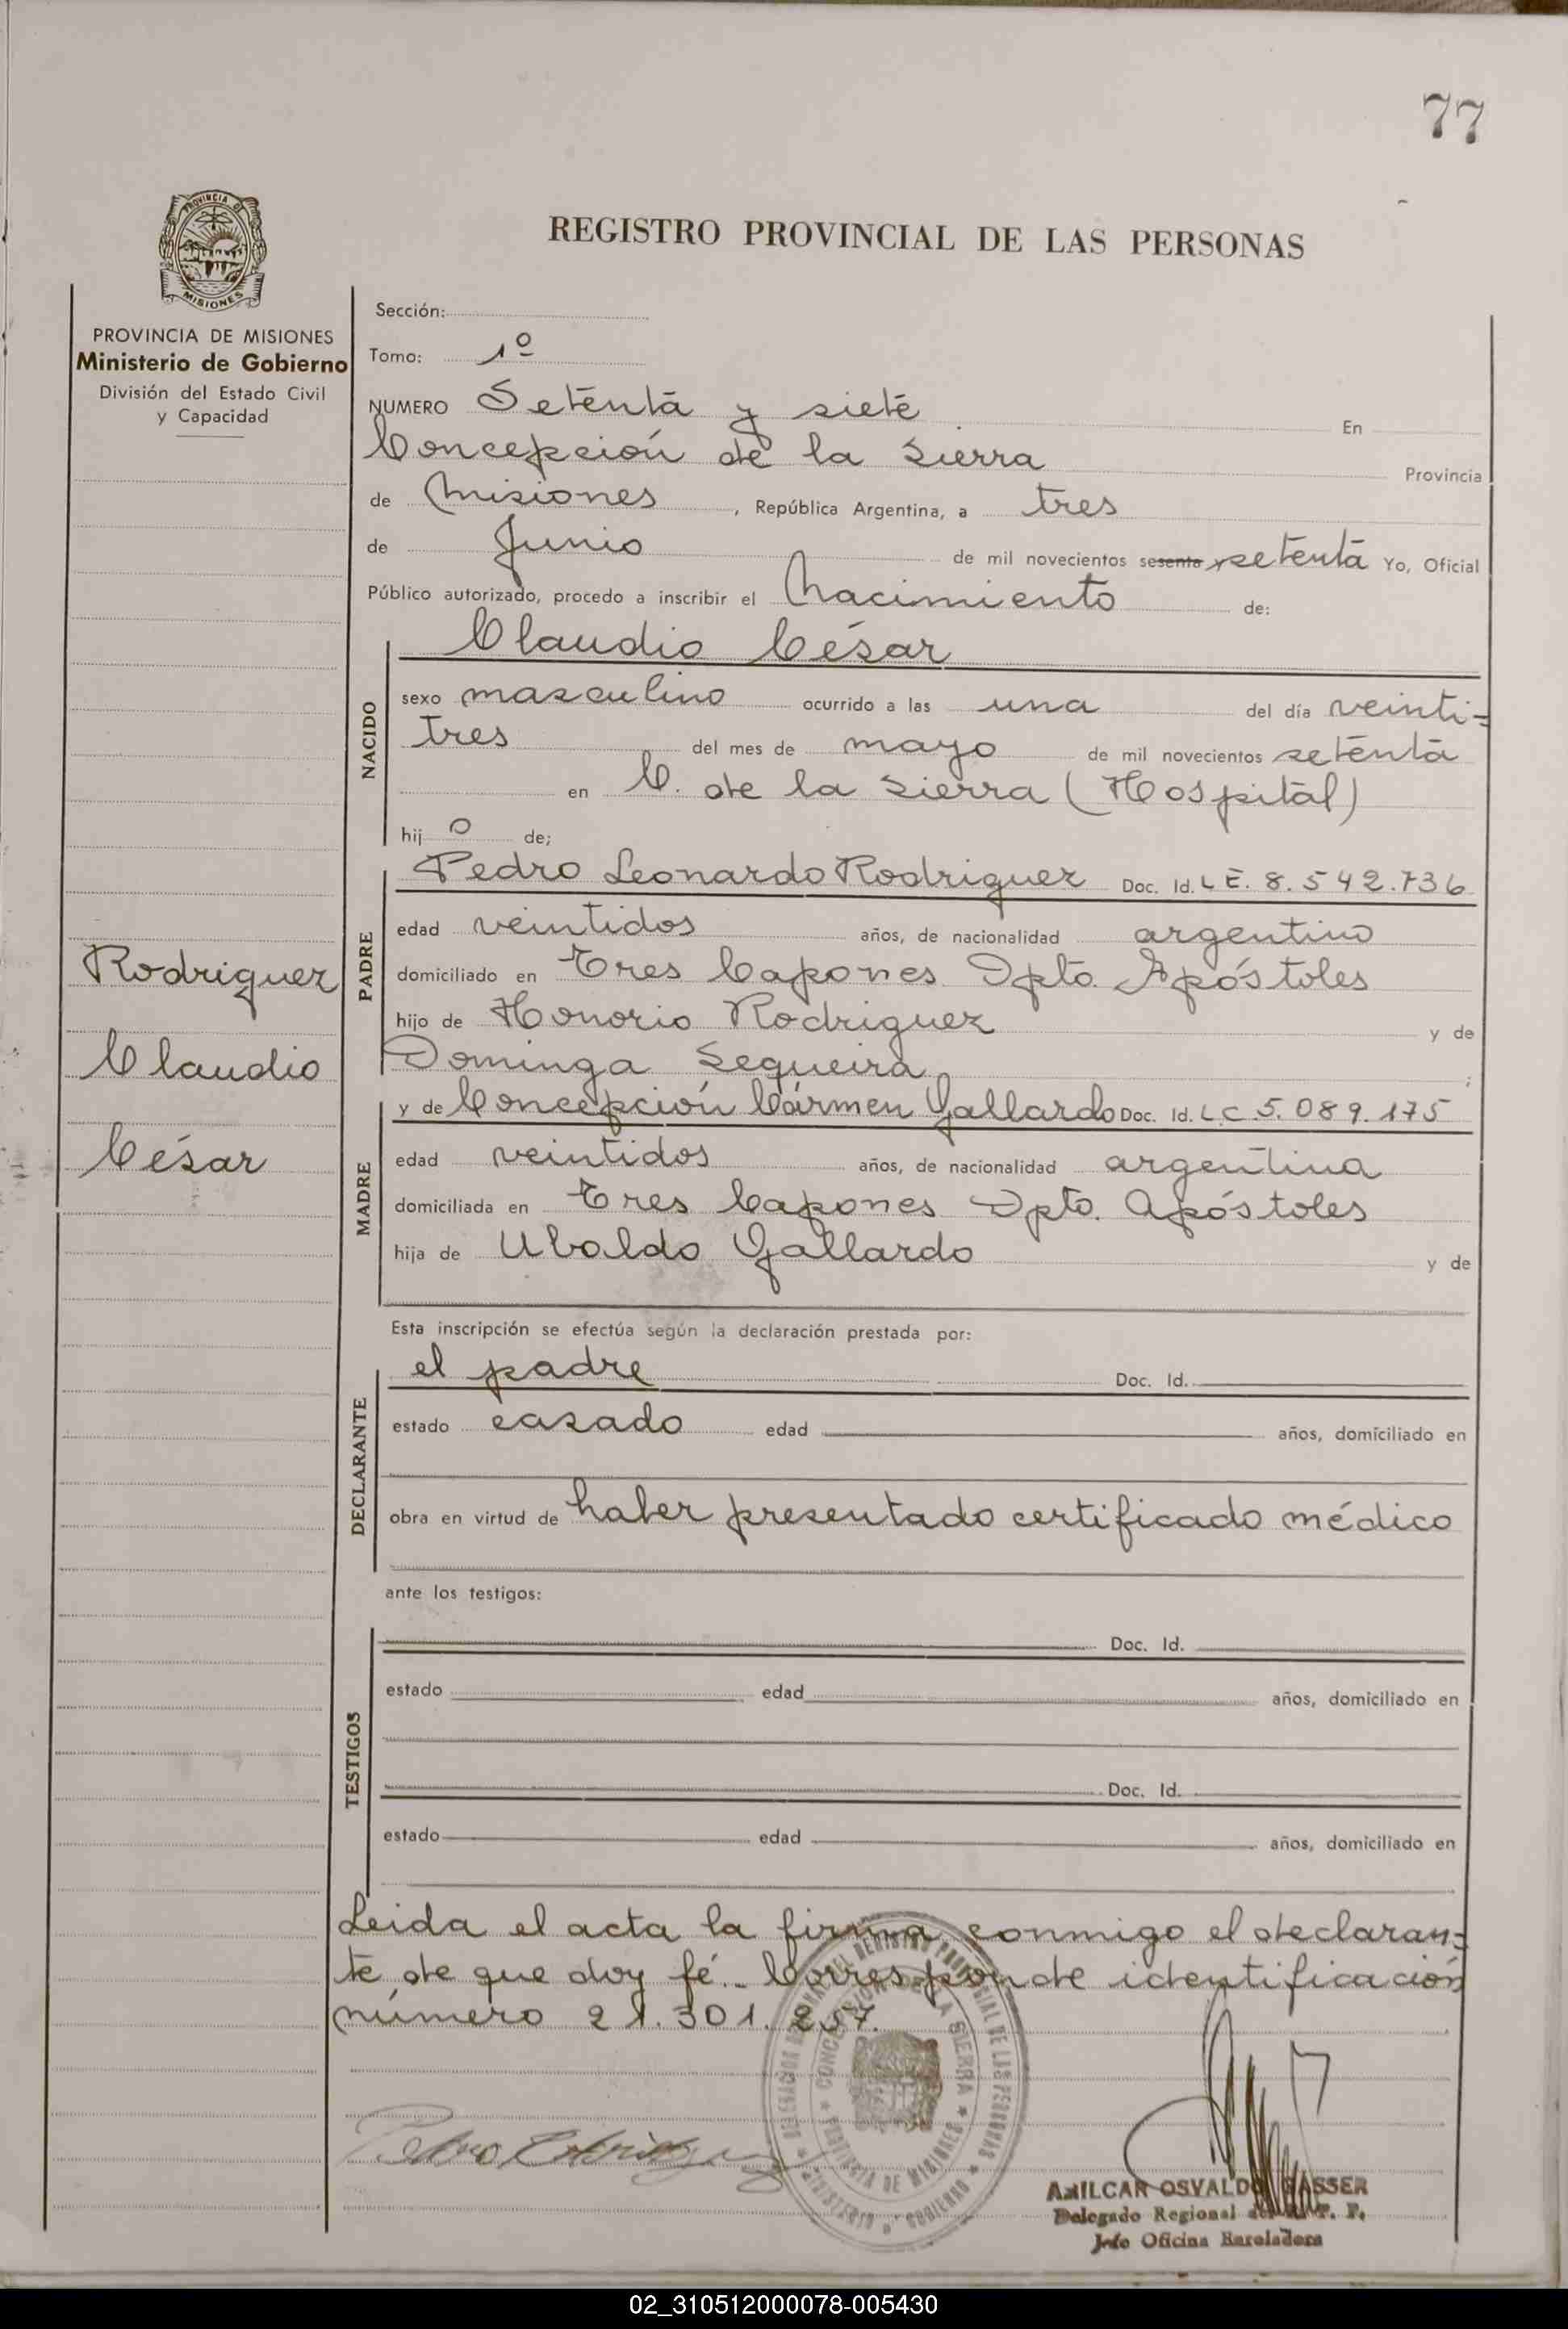 77
PROVINCIA DE
MISIONES
REGISTRO PROVINCIAL DE LAS PERSONAS
PROVINCIA DE MISIONES
Ministerio de Gobierno
División del Estado Civil
y Capacidad
Rodriguez
Claudio
César
Sección:
Tomo: 1º
NUMERO Setenta y siete En
Concepción de la Sierra Provincia
de Misiones, República Argentina, a tres
de Junio de mil novecientos sesenta y setenta Yo, Oficial
Público autorizado, procedo a inscribir el Nacimiento de:
NACIDO
Claudio César
sexo masculino ocurrido a las una del día veinti=
tres del mes de mayo de mil novecientos setenta
en C. de la Sierra (Hospital)
hij o de;
PADRE
Pedro Leonardo Rodriguez Doc. Id. L E. 8.542.736
edad veintidos años, de nacionalidad argentino
domiciliado en Tres Capones Dpto. Apóstoles
hijo de Honorio Rodriguez y de
Dominga Sequeira ;
MADRE
y de Concepción Cármen Gallardo Doc. Id. L.C 5.089.175
edad veintidos años, de nacionalidad argentina
domiciliada en Tres Capones Dpto. Apóstoles
hija de Ubaldo Gallardo y de
Esta inscripción se efectúa según la declaración prestada por:
DECLARANTE
el padre Doc. Id.
estado casado edad años, domiciliado en
obra en virtud de haber presentado certificado médico
ante los testigos:
TESTIGOS
Doc. Id.
estado edad años, domiciliado en
Doc. Id.
estado edad años, domiciliado en
Leida el acta la firma conmigo el declaran=
te de que doy fé.. Corresponde identificación
número 21.301.257.
CONCEPCION DE LA SIERRA * PROVINCIA DE MISIONES *
MINISTERIO DE GOBIERNO
Pedro Rodriguez
AMILCAR OSVALDO GASSER
Delegado Regional del R. P. P.
Jefe Oficina Enroladora
02_310512000078-005430